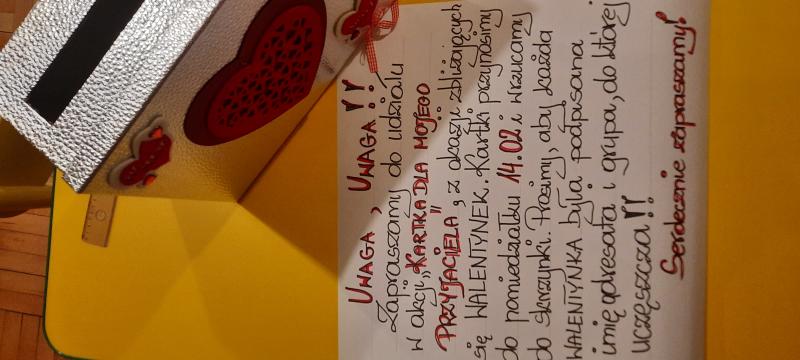 UWAGA, UWAGA!!
Zapraszamy do udziału
w akcji „KARTKA DLA MOJEGO
PRZYJACIELA", z okazji zbliżających
się WALENTYNEK. Kartki przynosimy
do poniedziałku 14.02 i wrzucamy
do skrzynki. Prosimy, aby każda
WALENTYNKA była podpisana
imię adresata i grupa, do której
uczęszcza!!
Serdecznie zapraszamy!